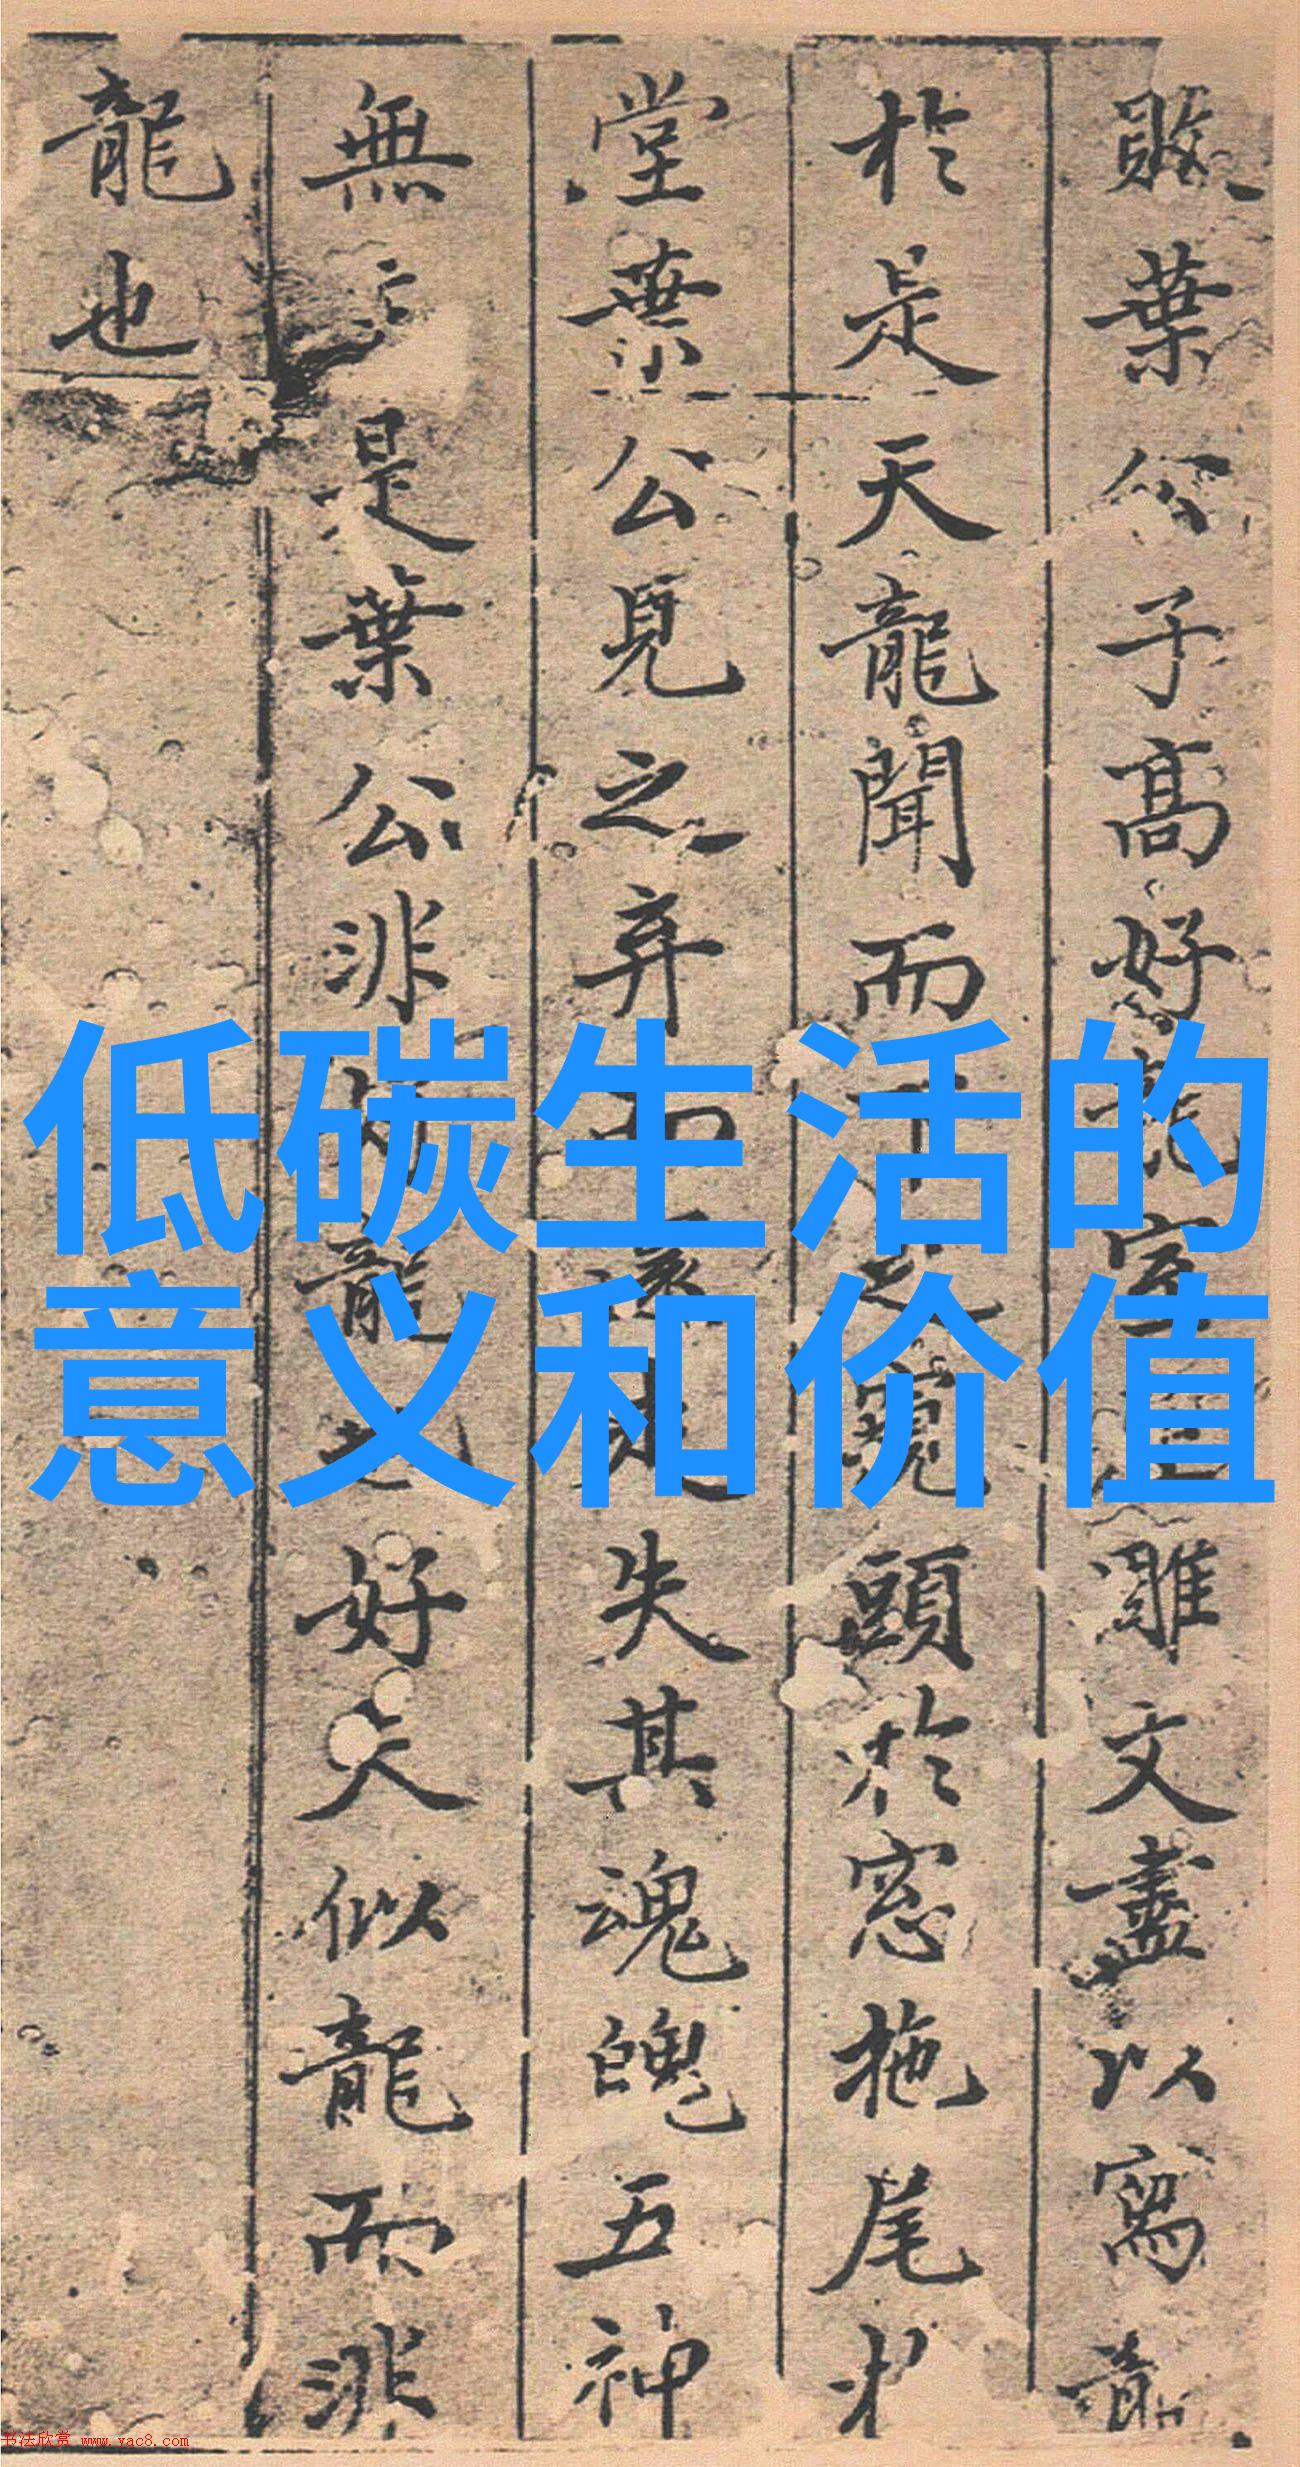 低碳生活的
意义和价值
敗葉公子高好龍室雕文盡以寫龍
於是天龍聞而下之窺頭於窓拖尾
堂葉公見之弃而還走失其魂魄五神
無主是葉公非好龍也好夫似龍而非
龍也
书法欣赏 www.yac8.com